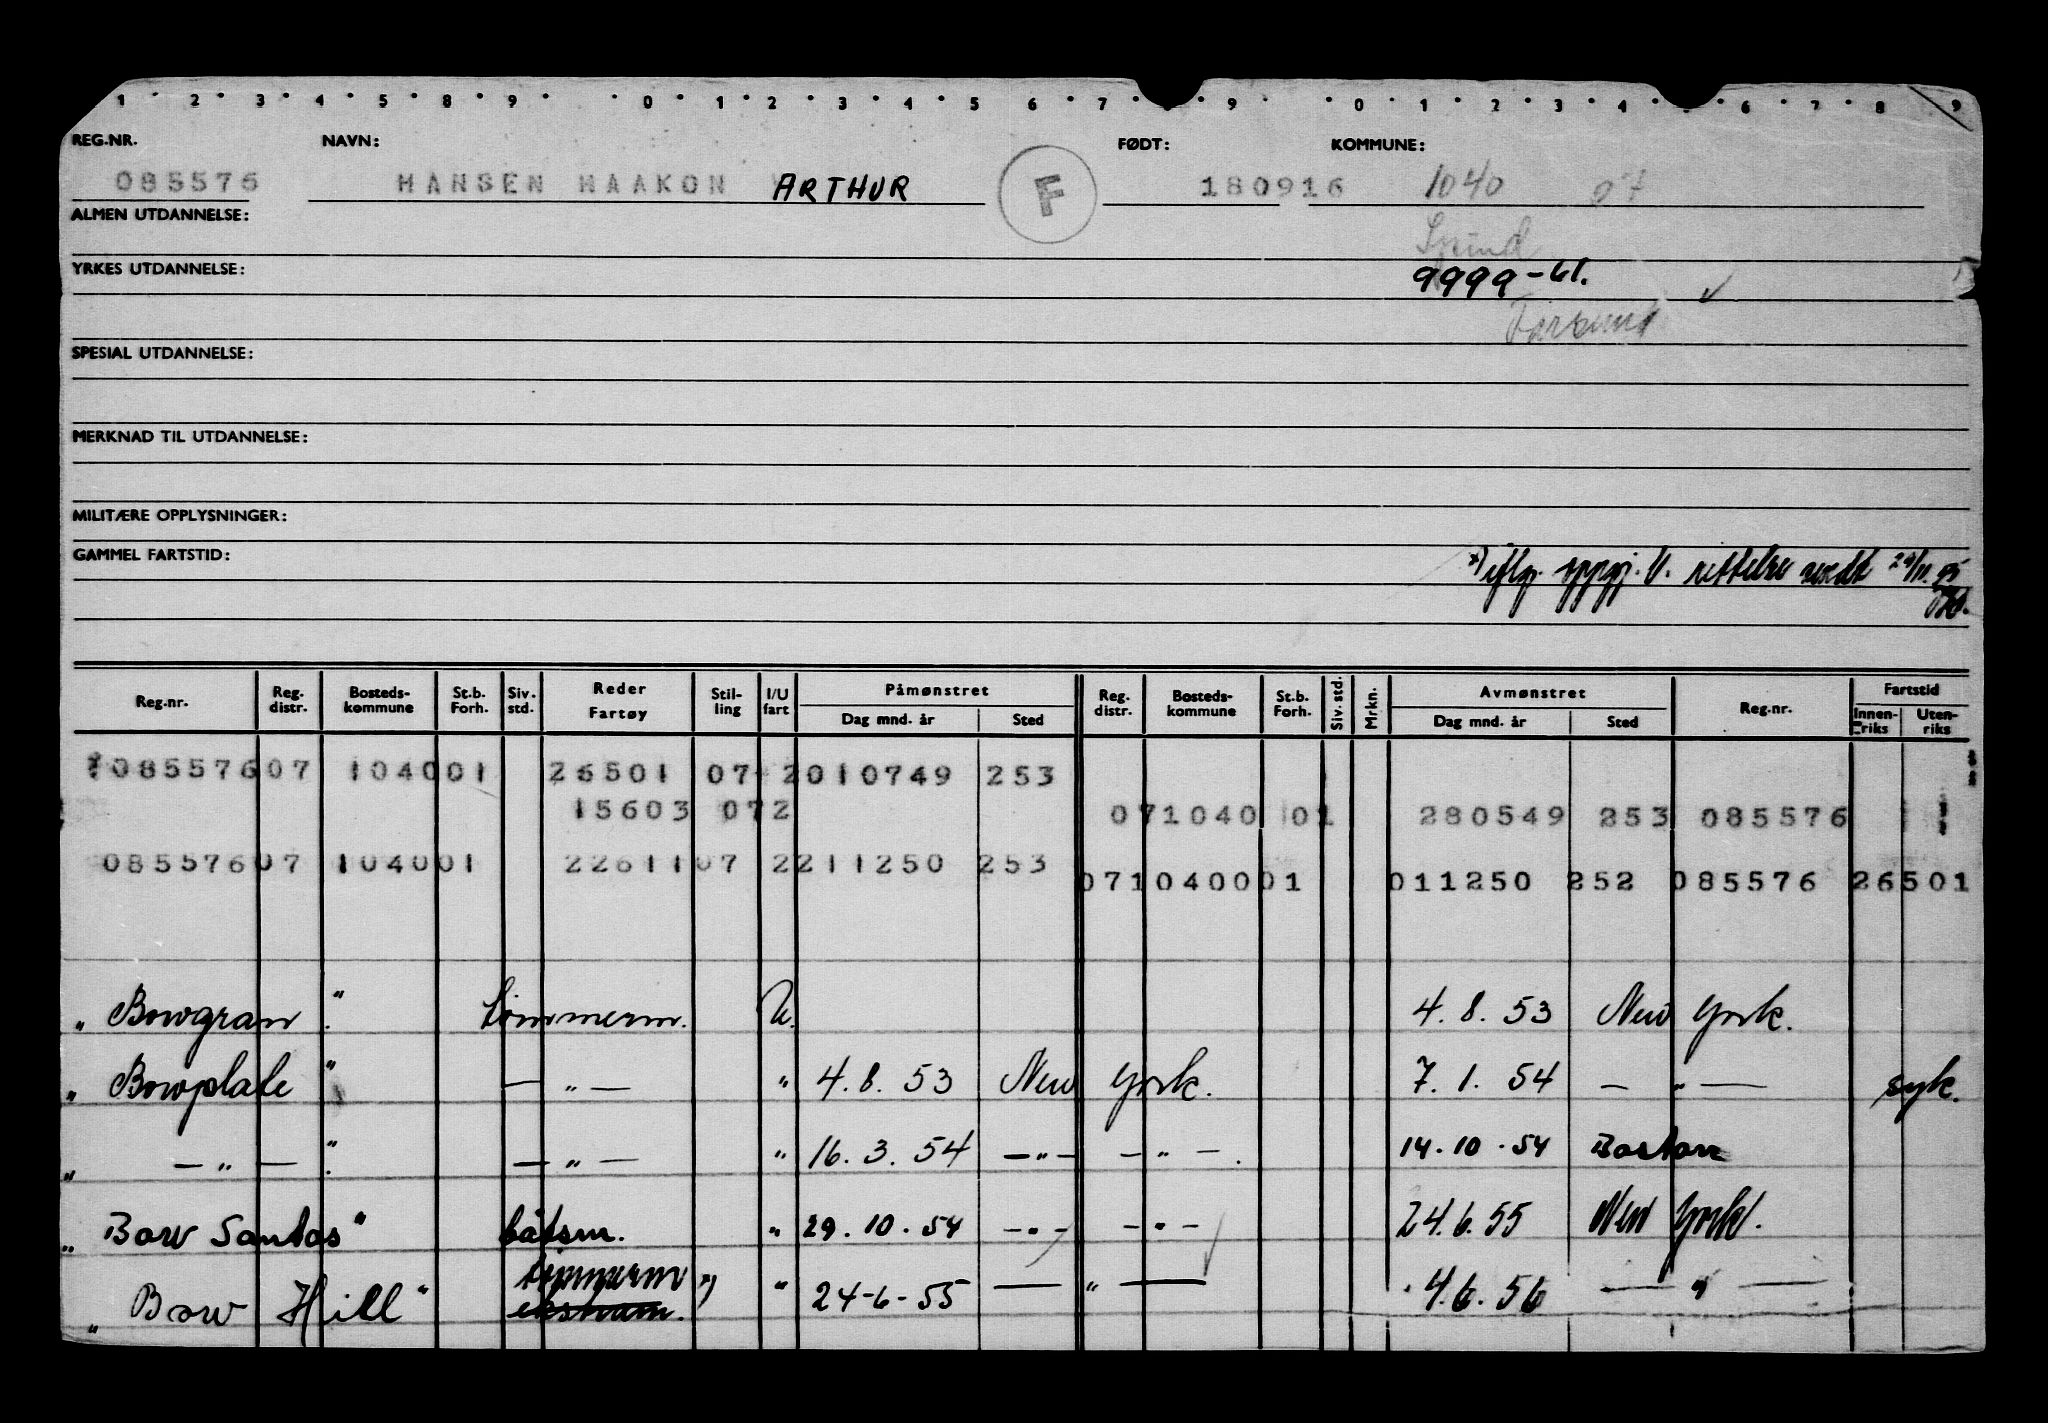 1 2 3 4 5 8 9 0 1 2 3 4 5 6 7 9 0 1 2 3 4 6 7 8 9
REG.NR. NAVN: FØDT: KOMMUNE:
085576 HANSEN HAAKON ARTHUR F 180916 1040 07
ALMEN UTDANNELSE: Spind
YRKES UTDANNELSE: 9999-61.
Farsund
SPESIAL UTDANNELSE:
MERKNAD TIL UTDANNELSE:
MILITÆRE OPPLYSNINGER:
GAMMEL FARTSTID:
*) iflg. oppgj. V. rettelse sendt 29/11.55
Reg.nr. Reg. distr. Bosteds-kommune St.b. Forh. Siv. std. Reder Fartøy Stil-ling I/U fart Påmønstret Dag mnd. år Sted Reg. distr. Bosteds-kommune St.b. Forh. Siv. std. Mrkn. Avmønstret Dag mnd. år Sted Reg.nr. Fartstid Innen-riks Uten-riks
08557607 104001 26501 07 2010749 253
15603 072 071040 01 280549 253 085576
08557607 104001 2261107 2211250 253
071040001 011250 252 085576 26501
„ Bowgran " tømmerm. U. 4.8.53 New York.
„ Bowplate " — „ — " 4.8.53 New York. 7.1.54 — „ — syk.
„ — „ — " — „ — " 16.3.54 — „ — — „ — . 14.10.54 Boston
„ Bow Santos" båtsm. " 29.10.54 — „ — — „ — 24.6.55 New York.
„ Bow Hill" tømmerm *) eksnam. " 24-6-55 — „ — 4.6.56 — „ —